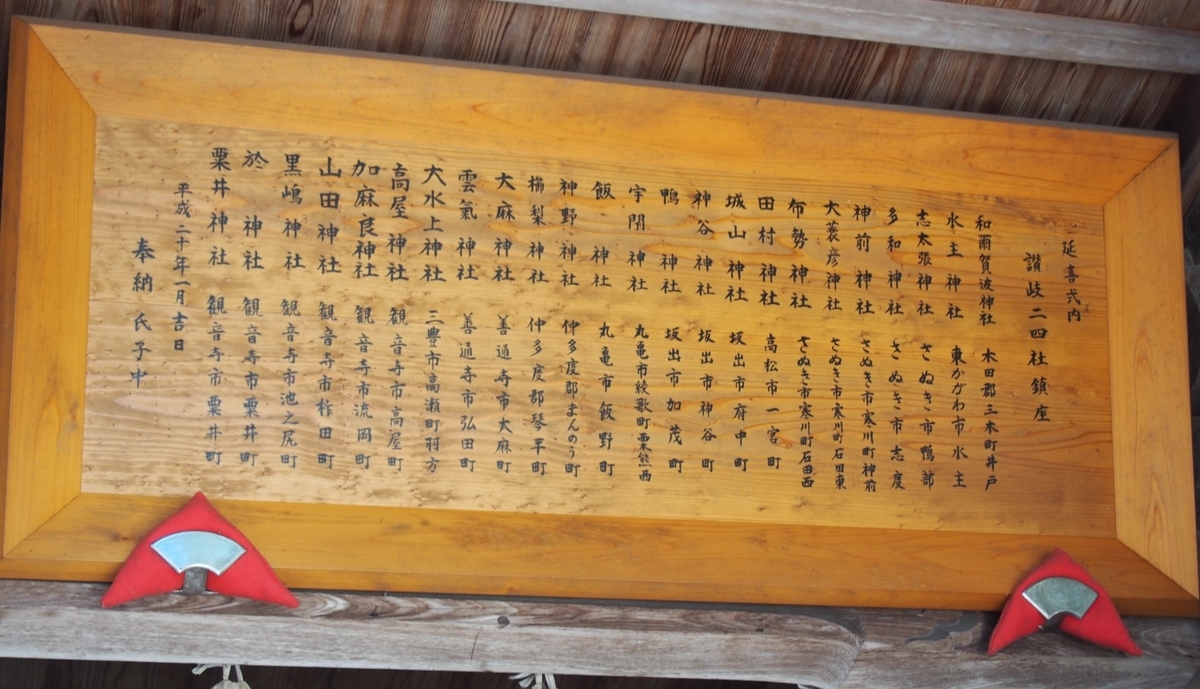 延喜式内
讃岐二四社鎮座
和爾賀波神社 木田郡三木町井戸
水主神社 東かがわ市水主
志太張神社 さぬき市鴨部
多和神社 さぬき市志度
神前神社 さぬき市寒川町神前
大蓑彦神社 さぬき市寒川町石田東
布勢神社 さぬき市寒川町石田西
田村神社 高松市一宮町
城山神社 坂出市府中町
神谷神社 坂出市神谷町
鴨神社 坂出市加茂町
宇閇神社 丸亀市綾歌町栗熊西
飯神社 丸亀市飯野町
神野神社 仲多度郡まんのう町
櫛梨神社 仲多度郡琴平町
大麻神社 善通寺市大麻町
雲氣神社 善通寺市弘田町
大水上神社 三豊市高瀬町羽方
高屋神社 観音寺市高屋町
加麻良神社 観音寺市流岡町
山田神社 観音寺市柞田町
黒嶋神社 観音寺市池之尻町
於神社 観音寺市粟井町
粟井神社 観音寺市粟井町
平成二十年一月吉日
奉納 氏子中